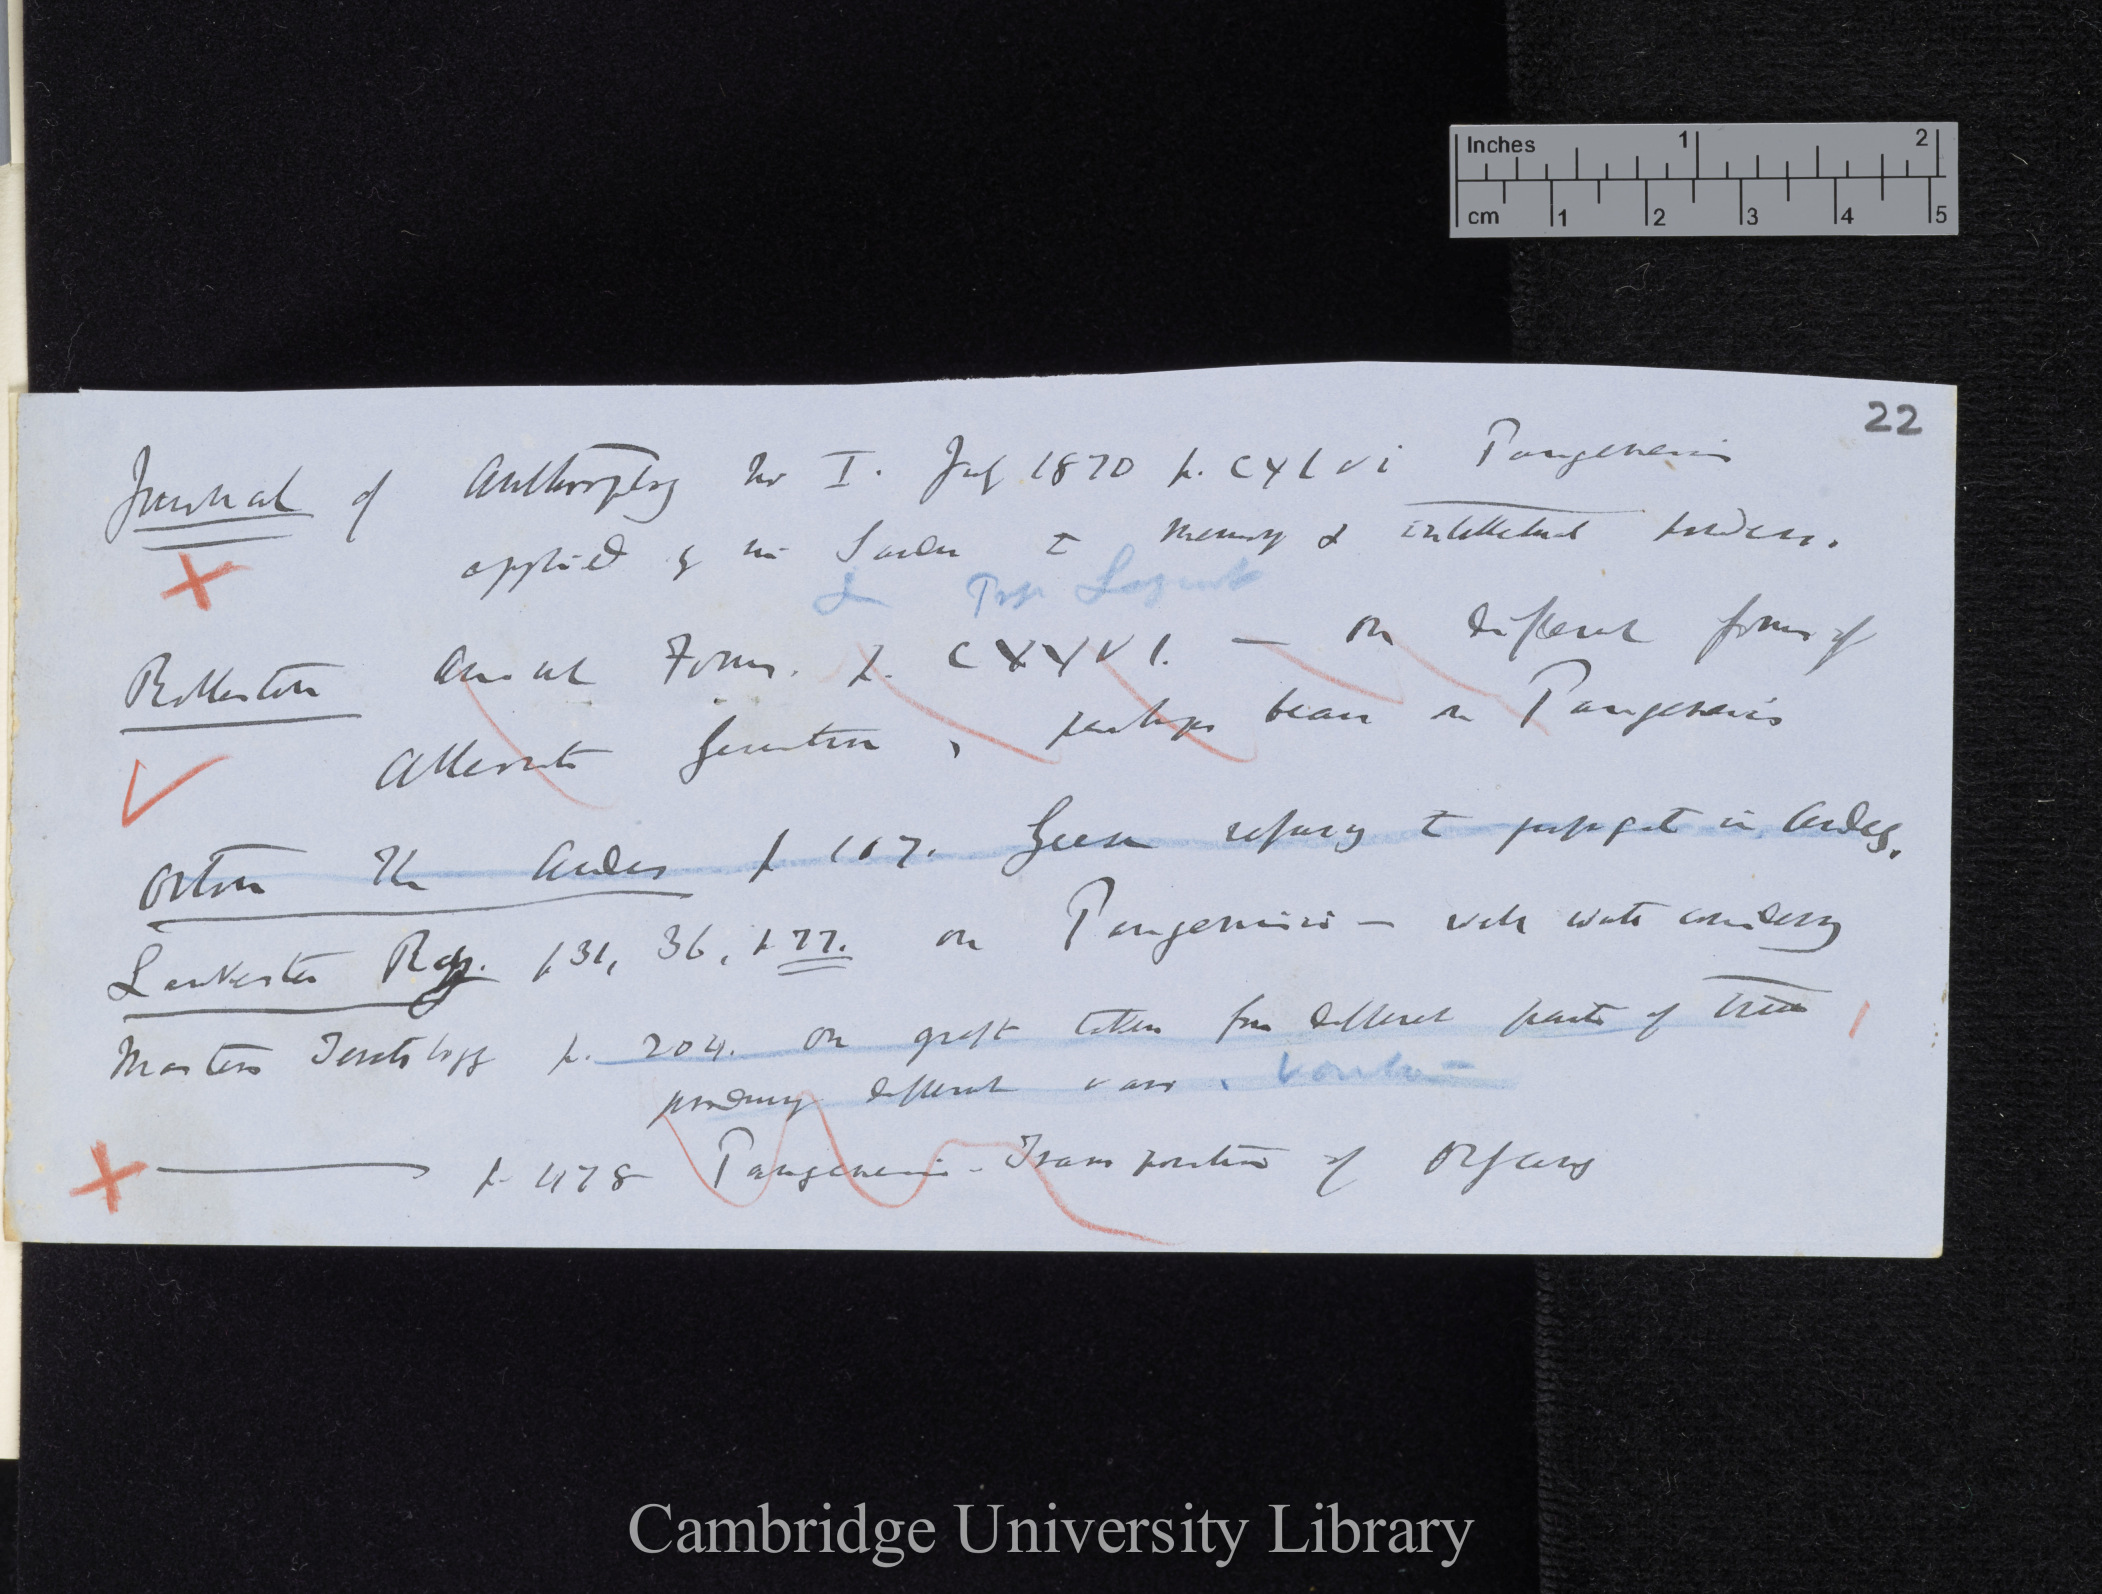 Inches 1 2
cm 1 2 3 4 5
22
Journal of Anthropology No I. July 1870 p. CXLVI Pangenesis
applied by to memory & intellectual
Rolleston Animal Forms. p. CXXVI. — on different forms of
Alternate Generation, perhaps bears on Pangenesis
Orton The Andes p 107. Geese refusing to propagate in Andes.
Lankester p 31, 36, p 77. on Pangenesis — well worth considering
Masters Teratology p. 204. on graft taken from different parts of tree
producing different vars.
p 478 Pangenesis - Transposition of Organs
Cambridge University Library